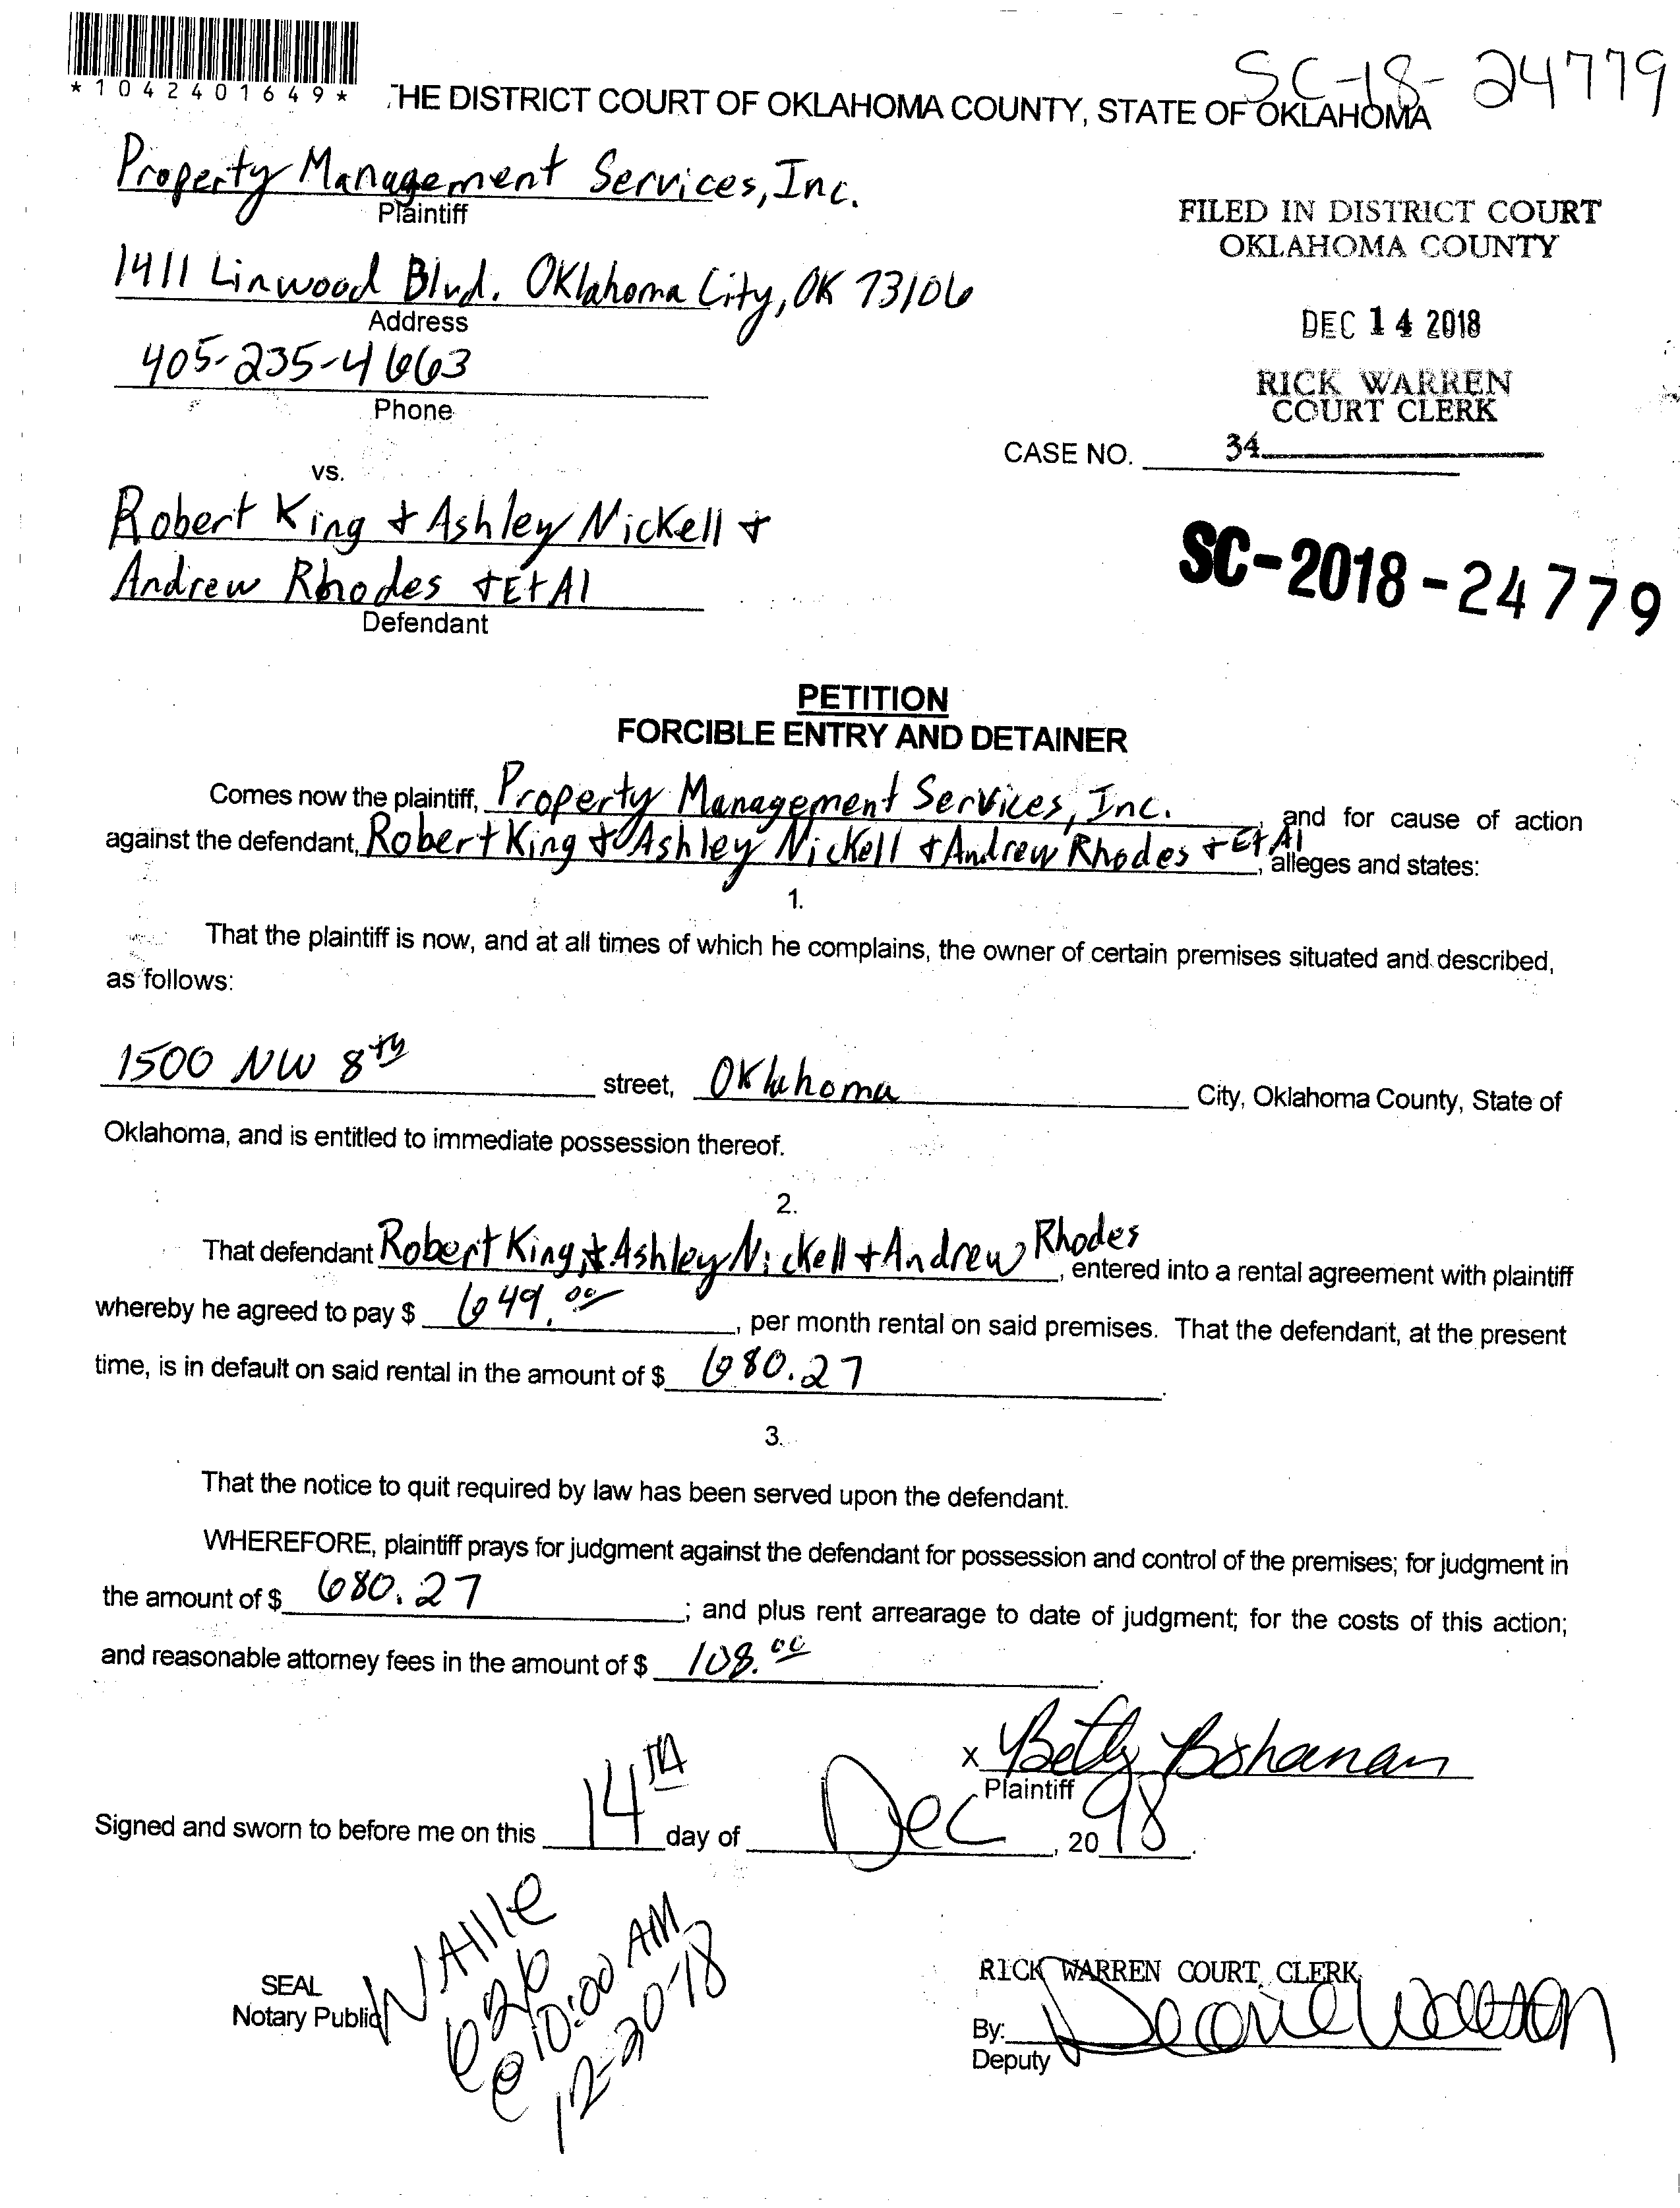 *1042401649*
SC-18-24779
THE DISTRICT COURT OF OKLAHOMA COUNTY, STATE OF OKLAHOMA
Property Management Services, Inc.
Plaintiff
1411 Linwood Blvd. Oklahoma City, OK 73106
Address
405-235-4663
Phone
FILED IN DISTRICT COURT
OKLAHOMA COUNTY
DEC 14 2018
RICK WARREN
COURT CLERK
34
CASE NO.
vs.
Robert King + Ashley Nickell +
Andrew Rhodes + Et Al
Defendant
SC-2018-24779
PETITION
FORCIBLE ENTRY AND DETAINER
Comes now the plaintiff, Property Management Services, Inc., and for cause of action
against the defendant, Robert King + Ashley Nickell + Andrew Rhodes + Et Al, alleges and states:
1.
That the plaintiff is now, and at all times of which he complains, the owner of certain premises situated and described,
as follows:
1500 NW 8th street, Oklahoma City, Oklahoma County, State of
Oklahoma, and is entitled to immediate possession thereof.
2.
That defendant Robert King + Ashley Nickell + Andrew Rhodes, entered into a rental agreement with plaintiff
whereby he agreed to pay $ 649.00, per month rental on said premises. That the defendant, at the present
time, is in default on said rental in the amount of $ 680.27.
3.
That the notice to quit required by law has been served upon the defendant.
WHEREFORE, plaintiff prays for judgment against the defendant for possession and control of the premises; for judgment in
the amount of $ 680.27; and plus rent arrearage to date of judgment; for the costs of this action;
and reasonable attorney fees in the amount of $ 108.00.
x Betty Bohanan
Plaintiff
Signed and sworn to before me on this 14th day of Dec, 20 18.
SEAL
Notary Public
626
@ 10:00 AM
12-20-18
RICK WARREN COURT CLERK
By:
Deputy